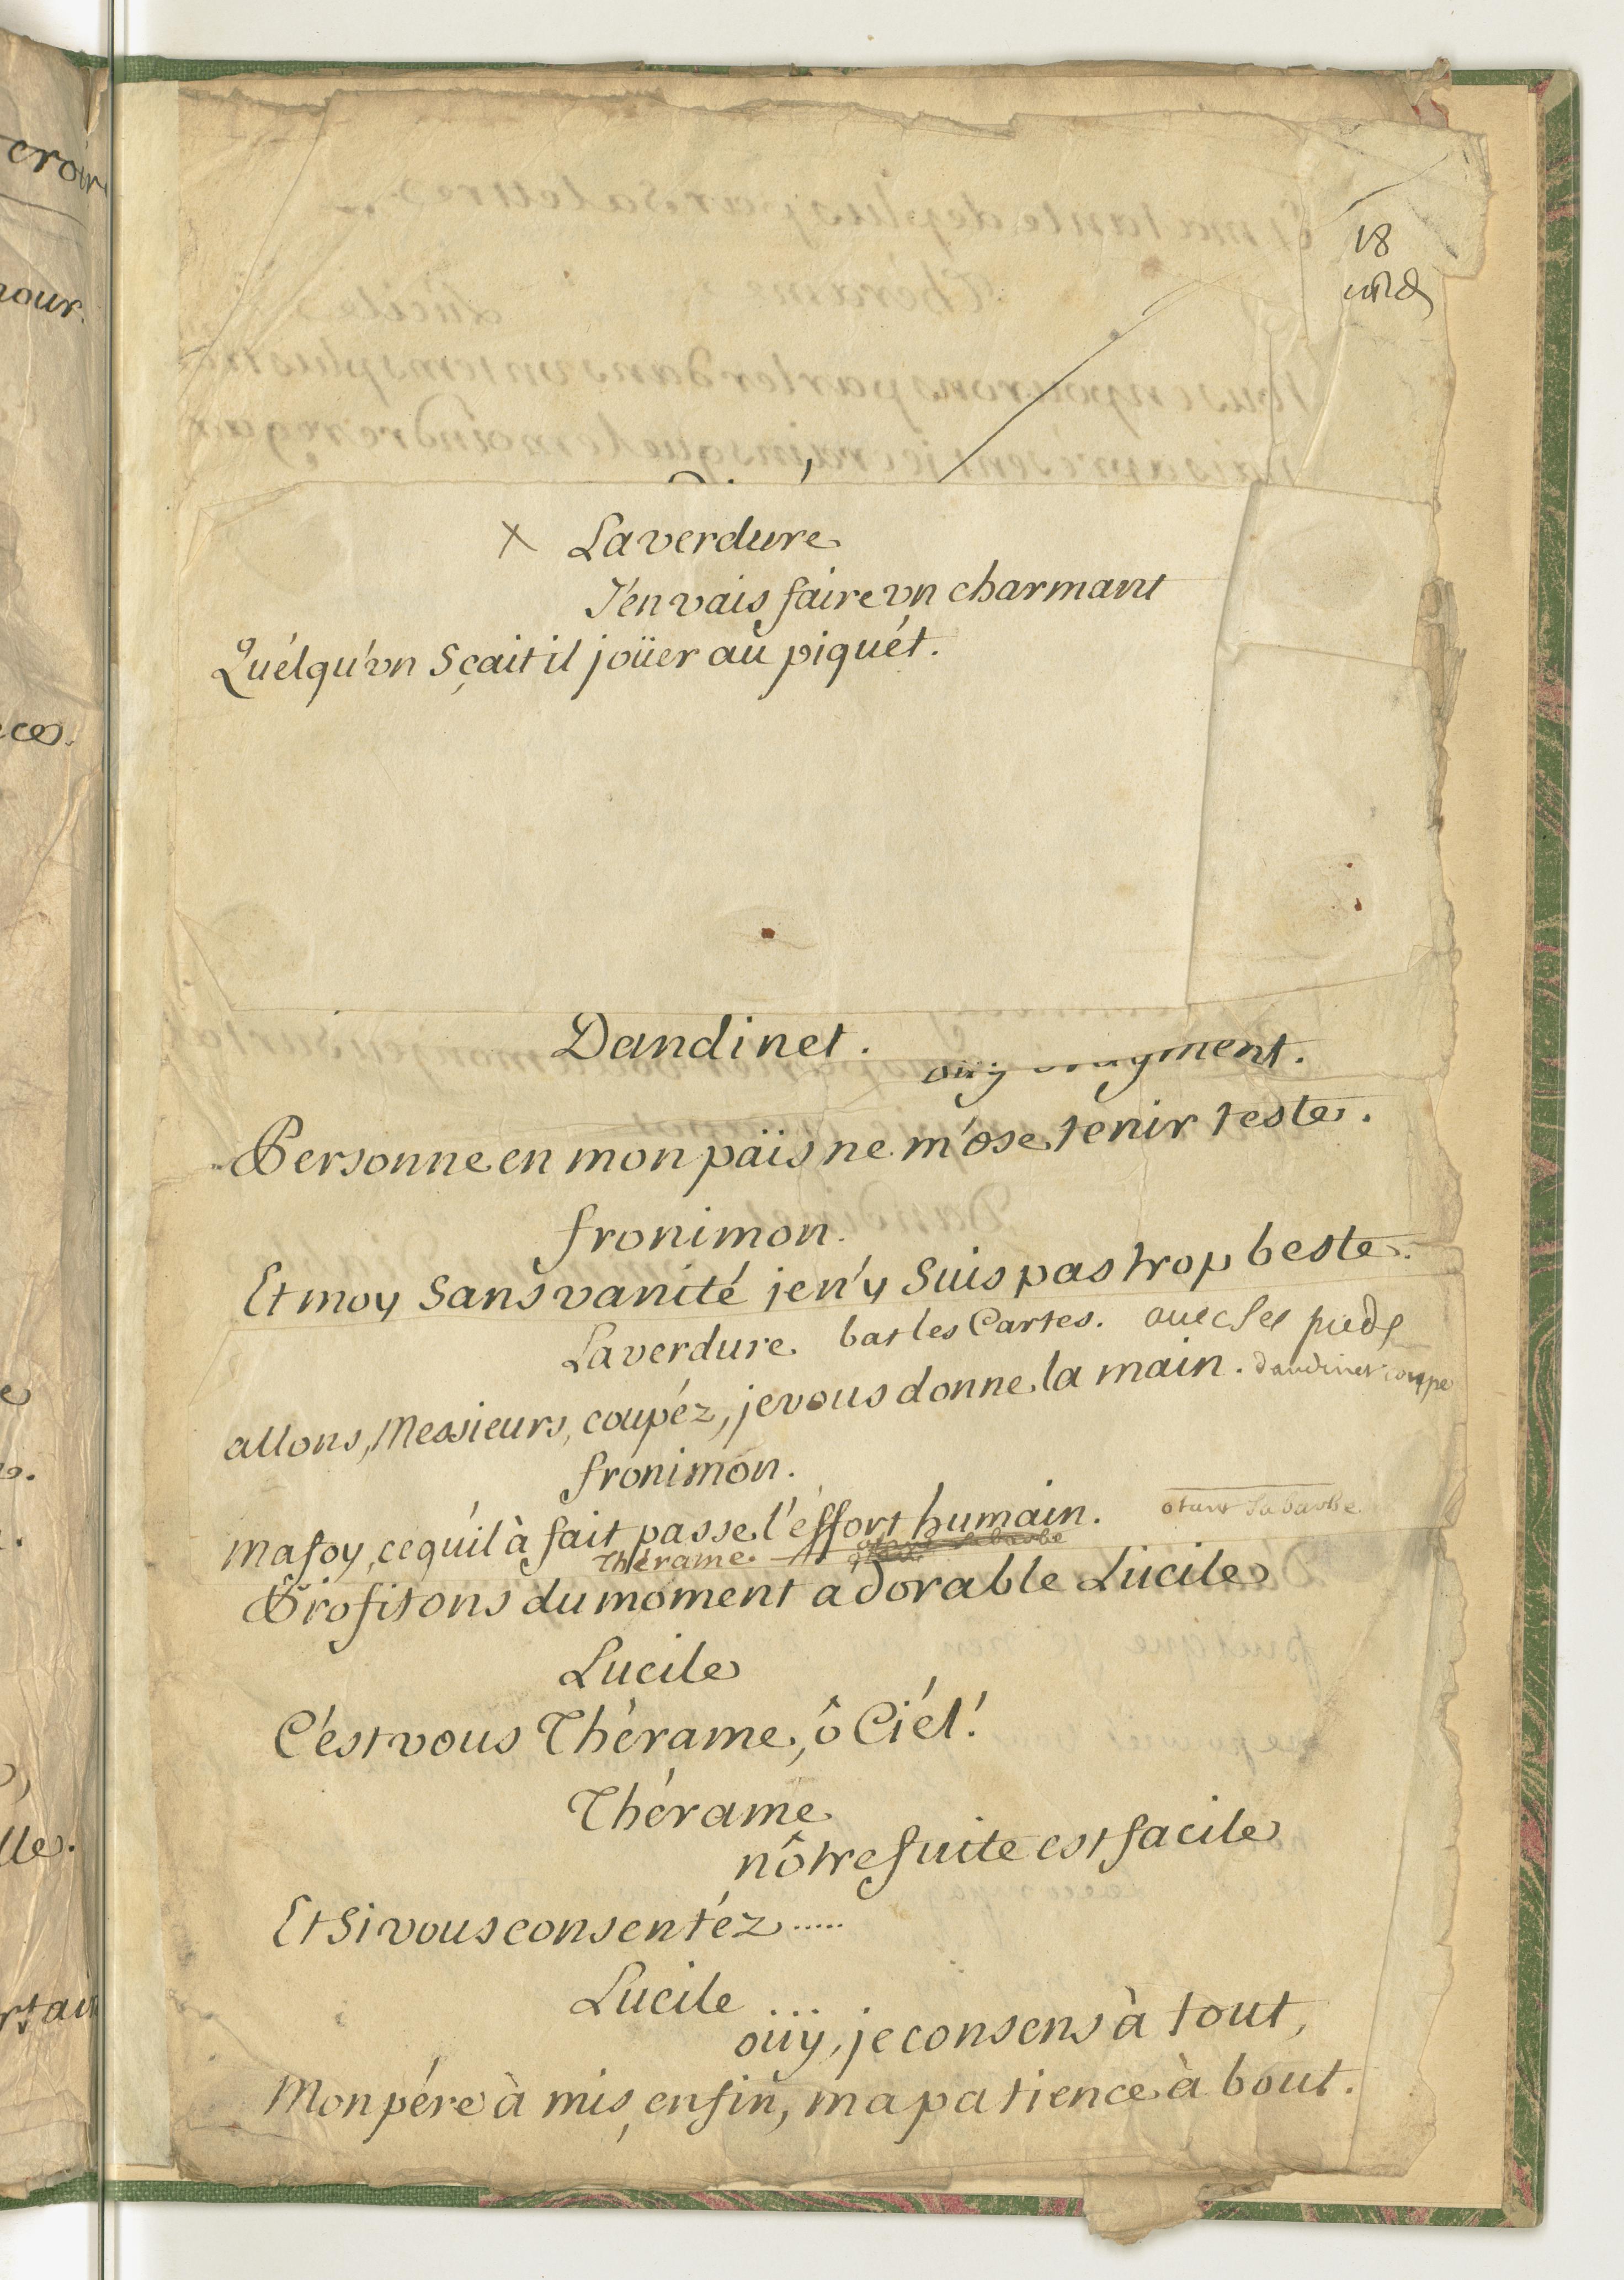 18
X Laverdure
J'en vais faire vn charmant
Quélqu'vn Sçait il joüer au piquét.
Dandinet.
oüy
Personne en mon païs ne m'ose tenir teste.
fronimon.
Et moy Sans vanité je n'y Suis pas trop beste.
Laverdure bat les Cartes. auec ses pieds
allons, Messieurs, coupéz, je vous donne la main. dandinet coupe
fronimon.
ma foy, ce qu'il à fait passe l'éffort humain. otant sa barbe
Thérame.
Profitons du moment adorable Lucile
Lucile
C'est vous Thérame, ô Ciél!
Thérame
nôtre fuite est facile
Et Si vous consentéz.....
Lucile
oüy, je consens à tout,
Mon pére à mis, enfin, ma patience à bout.